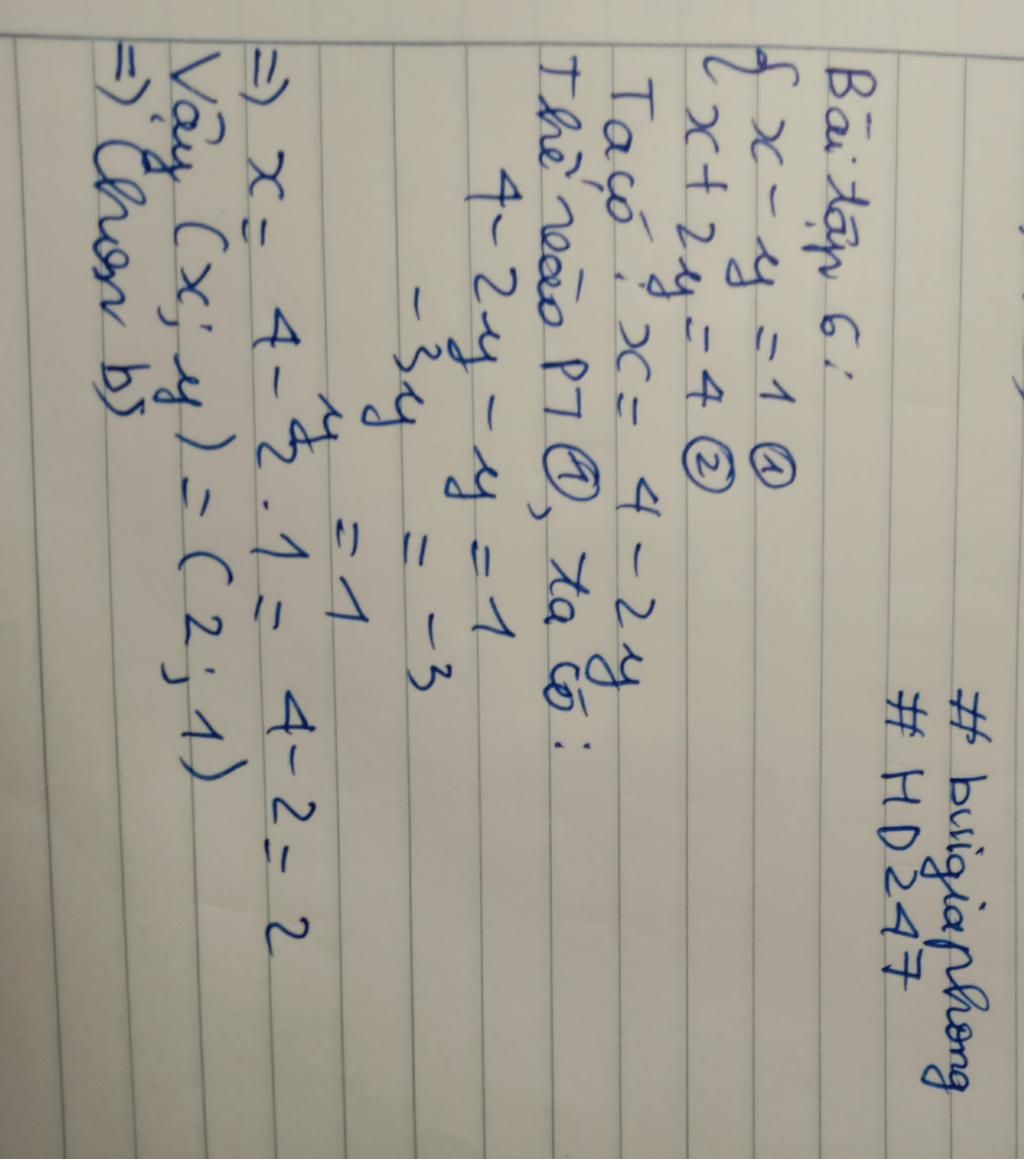 # buigiaphong
# HD247
Bài tập 6:
{ x - y = 1 ①
{ x + 2y = 4 ②
Ta có: x = 4 - 2y
Thế vào PT ①, ta có:
4 - 2y - y = 1
-3y = -3
y = 1
=) x = 4 - 2 . 1 = 4 - 2 = 2
Vậy (x; y) = (2; 1)
=) Chọn b)